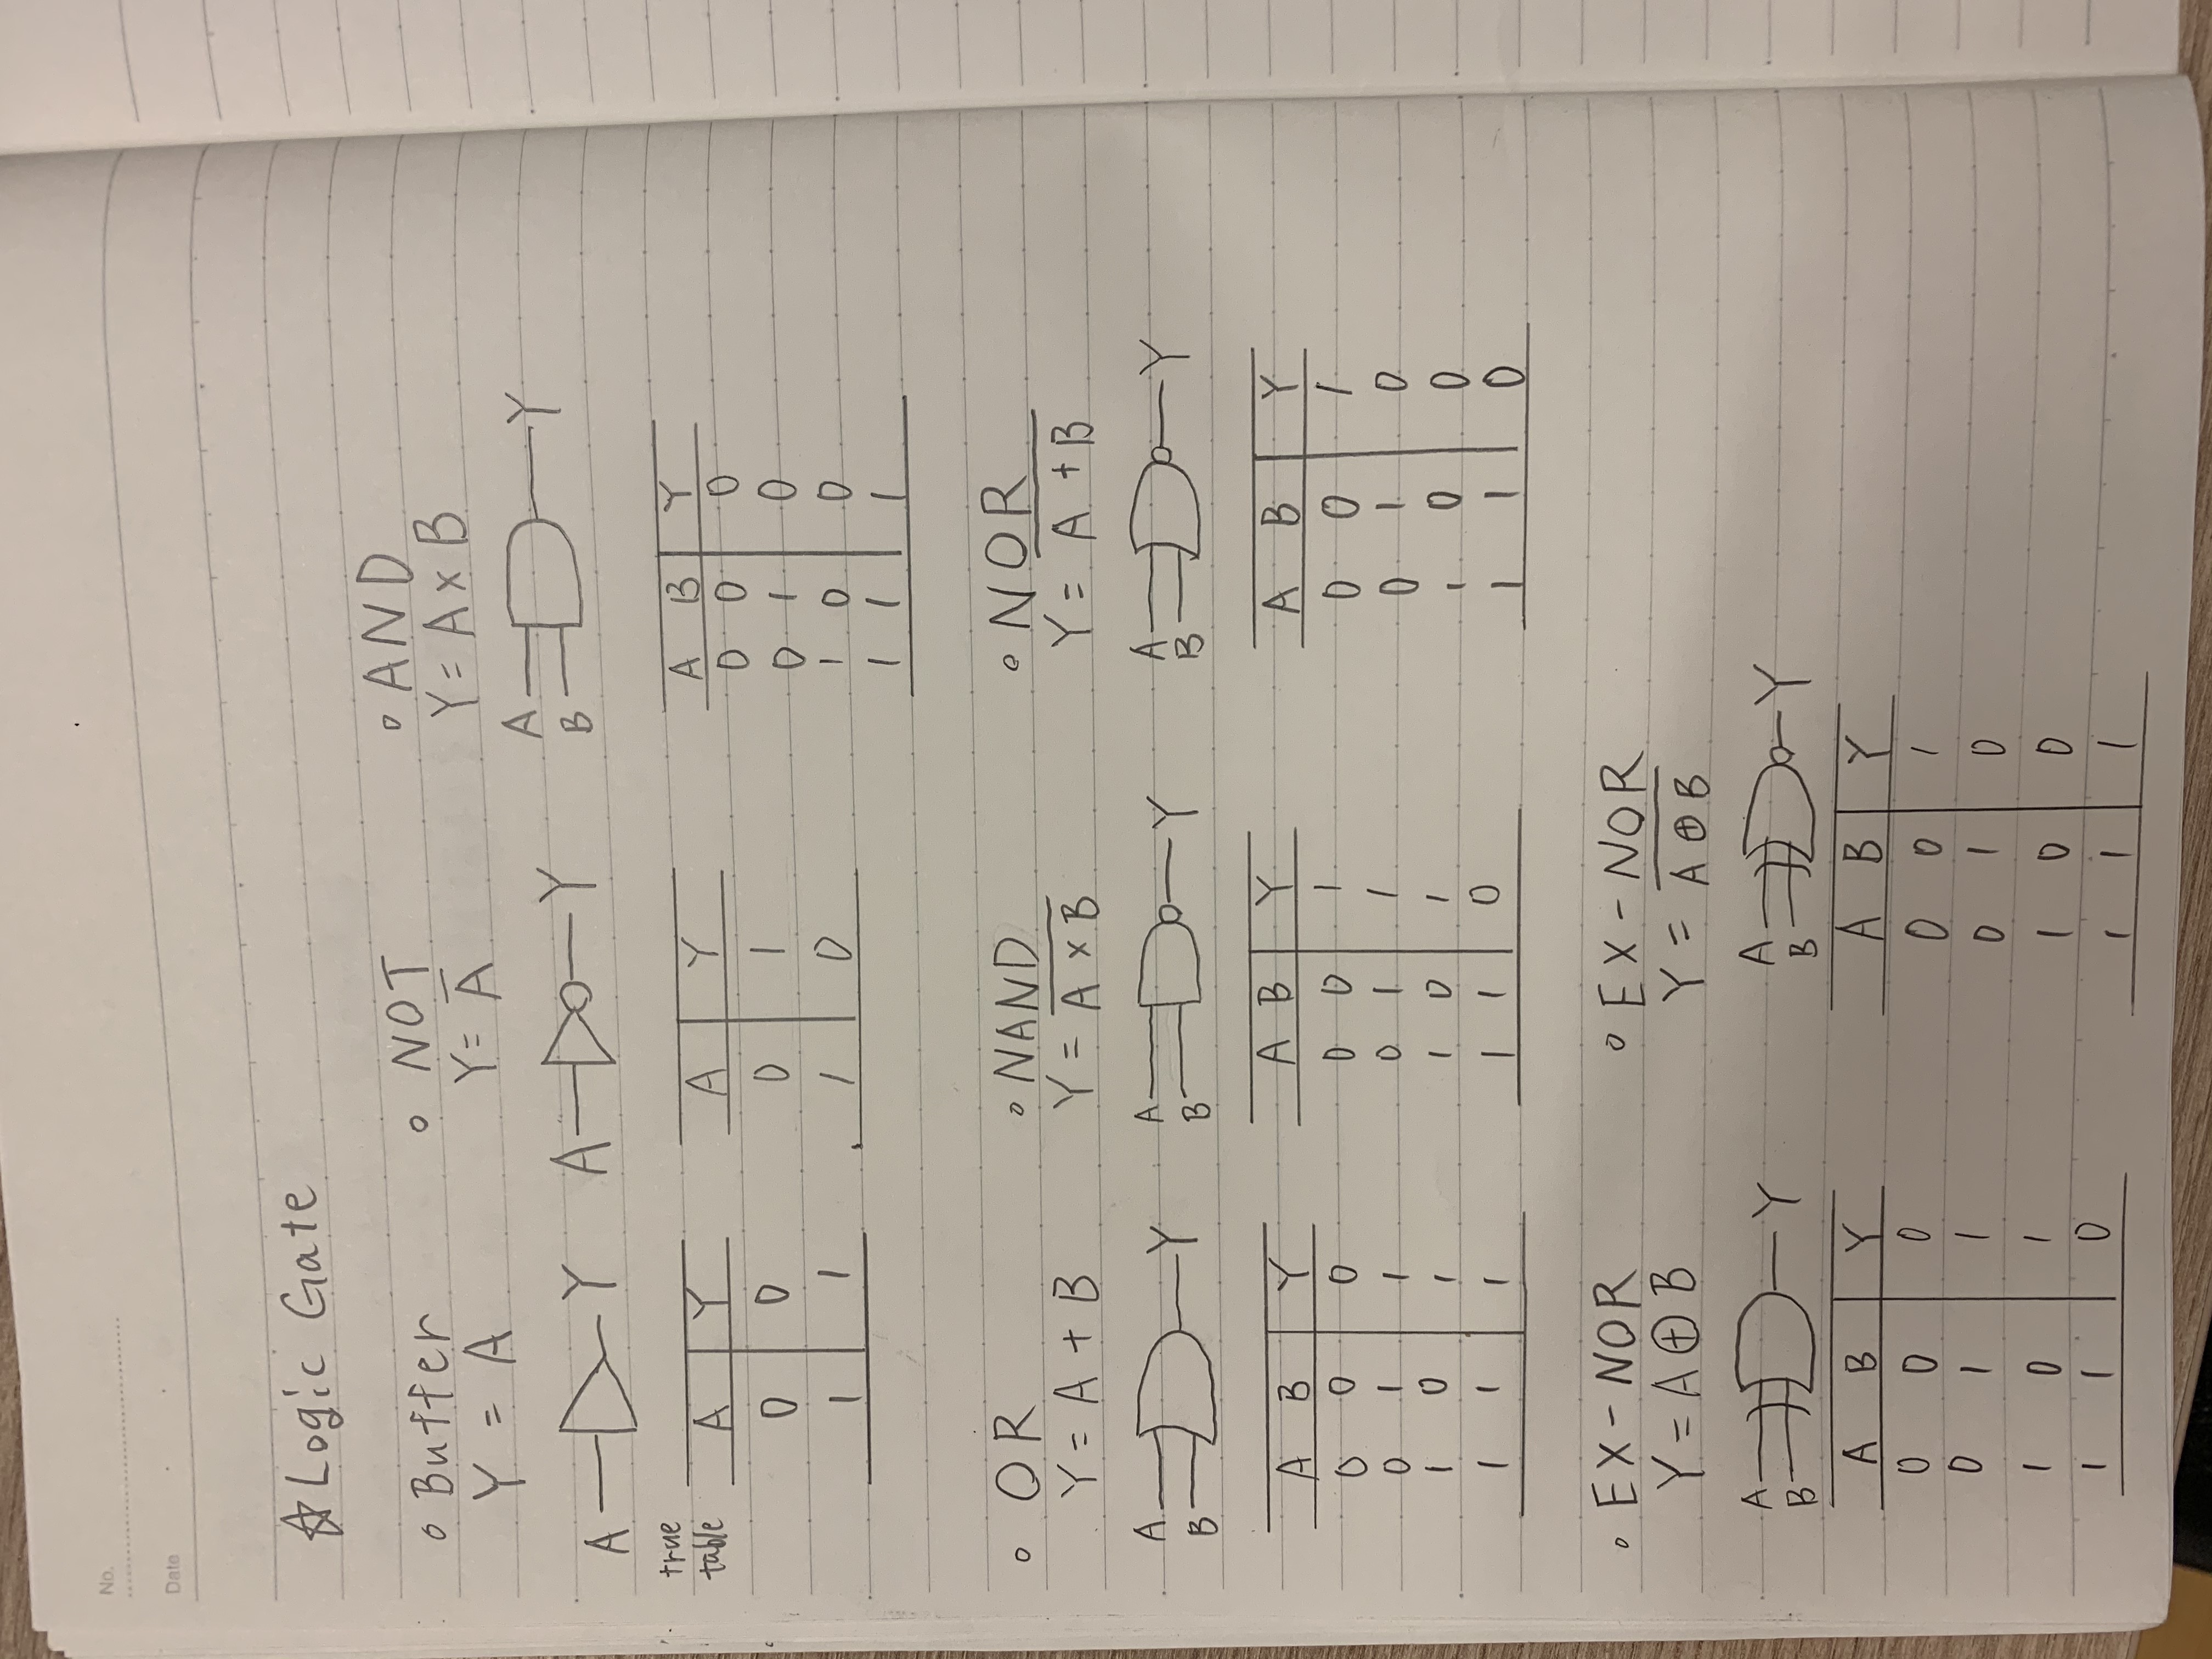 No.
Date
☆ Logic Gate
○ Buffer
Y = A
A Y
true
table
A Y
0 0
1 1
○ NOT
Y = A̅
A Y
A Y
0 1
1 0
○ AND
Y = A × B
A Y
B
A B Y
0 0 0
0 1 0
1 0 0
1 1 1
○ OR
Y = A + B
A Y
B
A B Y
0 0 0
0 1 1
1 0 1
1 1 1
○ NAND
Y = A̅ ̅×̅ ̅B̅
A Y
B
A B Y
0 0 1
0 1 1
1 0 1
1 1 0
○ NOR
Y = A̅ ̅+̅ ̅B̅
A Y
B
A B Y
0 0 1
0 1 0
1 0 0
1 1 0
○ EX-NOR
Y = A ⊕ B
A Y
B
A B Y
0 0 0
0 1 1
1 0 1
1 1 0
○ EX-NOR
Y = A̅ ̅⊕̅ ̅B̅
A Y
B
A B Y
0 0 1
0 1 0
1 0 0
1 1 1